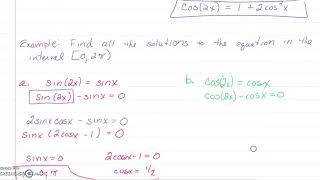 cos(2x) = 1 + 2cos²x
Example- Find all the solutions to the equation in the
interval [0, 2π)
a. sin(2x) = sinx
sin(2x) - sinx = 0
2sinx cosx - sinx = 0
sinx (2cosx - 1) = 0
sinx = 0 2cosx - 1 = 0
π cosx = 1/2
b. cos(2x) = cosx
cos(2x) - cosx = 0
0